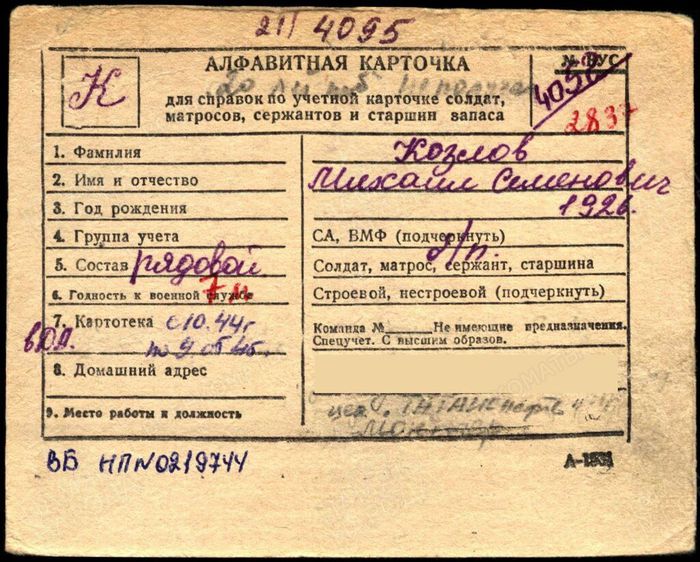 21/ 4095
К
АЛФАВИТНАЯ КАРТОЧКА
для справок по учетной карточке солдат,
матросов, сержантов и старшин запаса
№ ВУС
4052
2837
1. Фамилия
Козлов
2. Имя и отчество
Михаил Семенович
3. Год рождения
1926.
4. Группа учета
СА, ВМФ (подчеркнуть)
5. Состав рядовой
Солдат, матрос, сержант, старшина
6. Годность к военной службе
Строевой, нестроевой (подчеркнуть)
7. Картотека с 10.44г
Команда №____ Не имеющие предназначения.
Спецучет. С высшим образов.
по 9.05.45г.
8. Домашний адрес
9. Место работы и должность
ВБ НП№0219744
А-1931